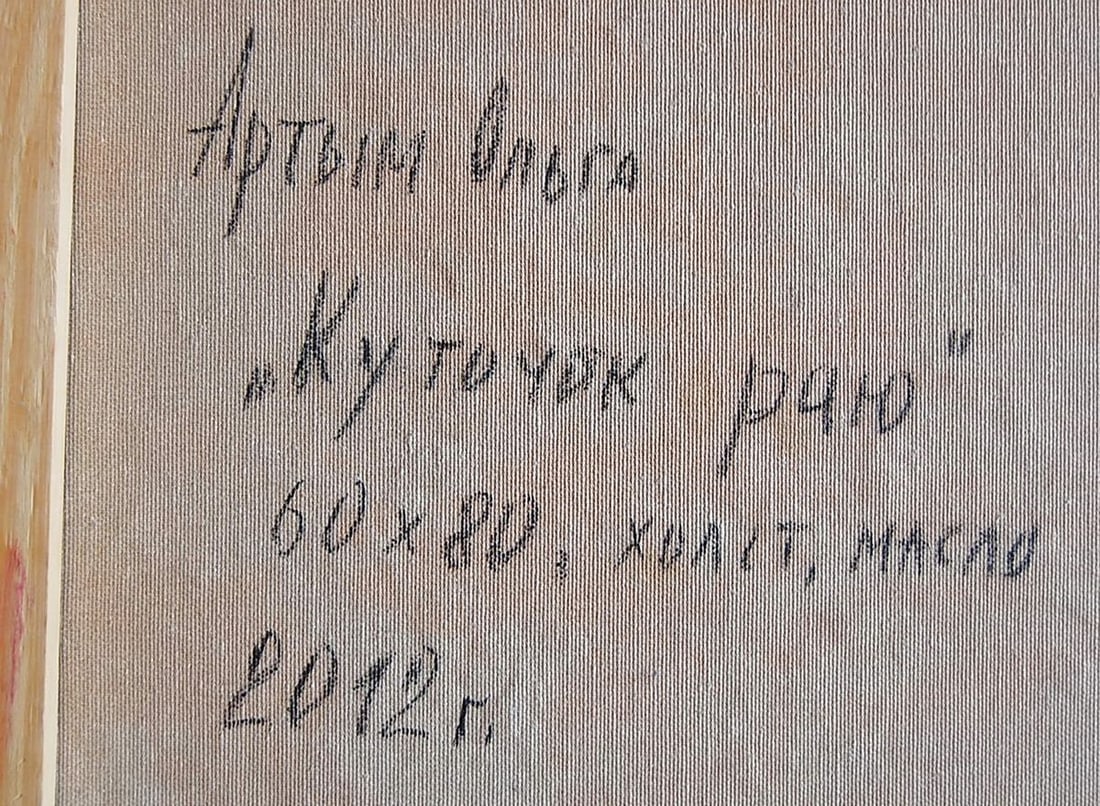 Артым Ольга
„Куточок раю"
60х80, холст, масло
2012 г.